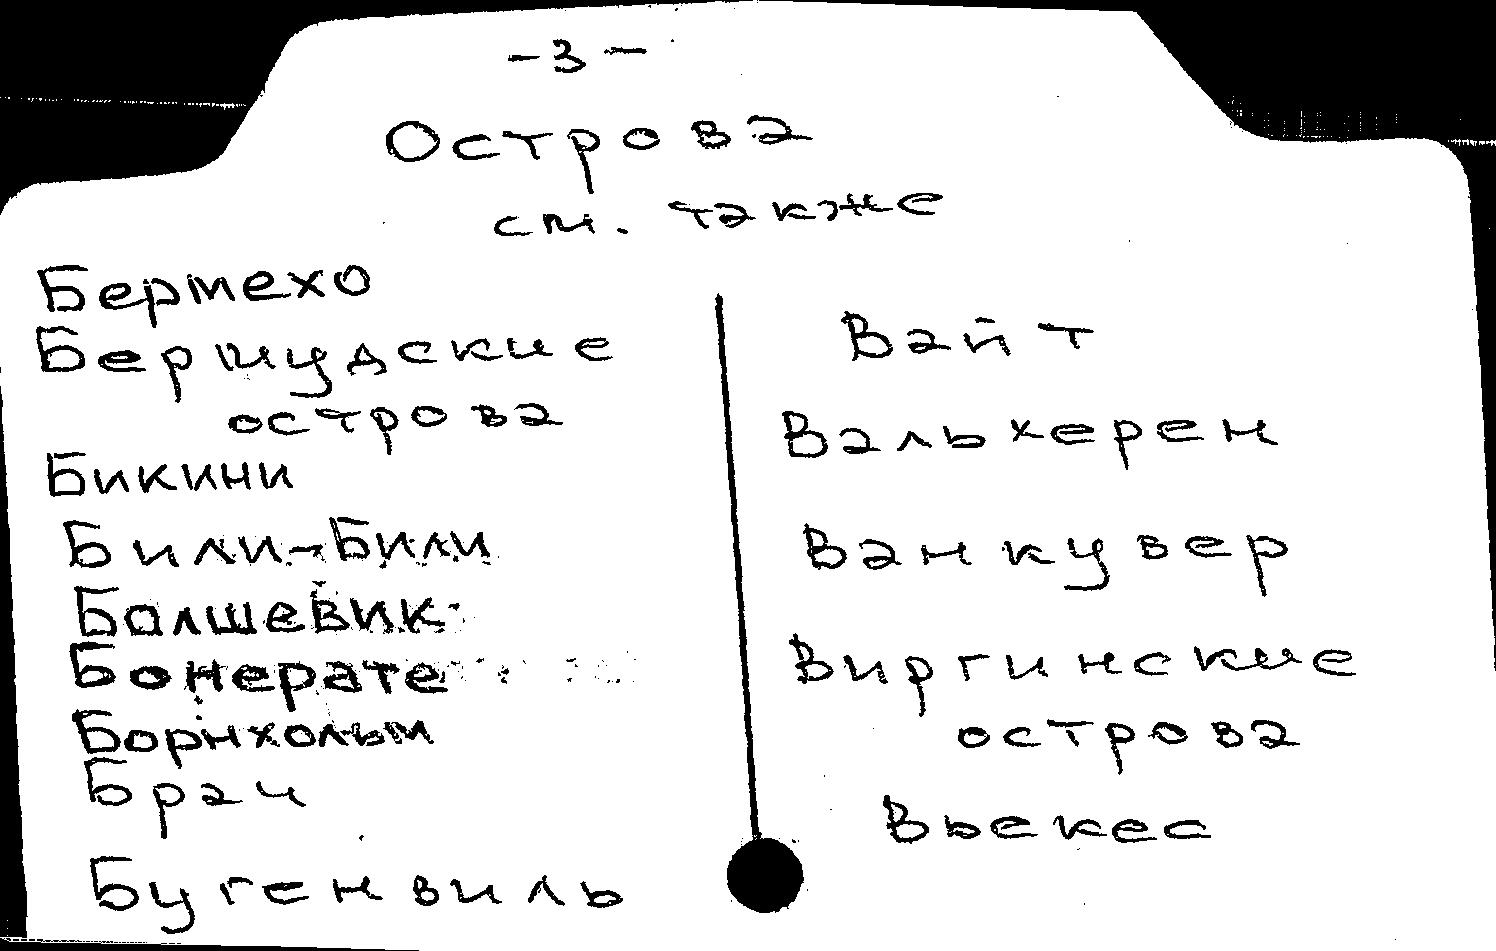 - 3 -
Острова
см. также
Бермехо
Бермудские
острова
Бикини
Били-Били
Болшевик
Бонерате
Борнхольм
Брач
Бугенвиль
Вайт
Вальхерен
Ванкувер
Виргинские
острова
Вьекес